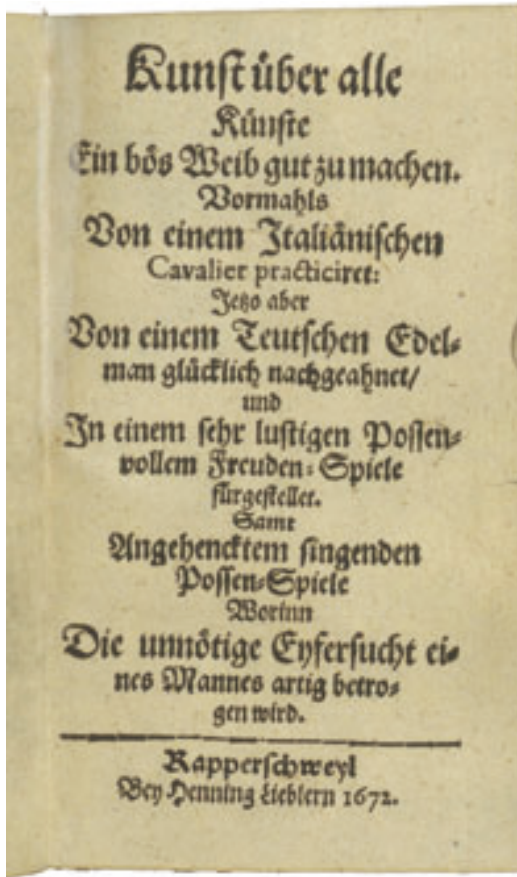 Kunst über alle
Künste
Ein bös Weib gut zu machen.
Vormahls
Von einem Italiänischen
Cavalier practiciret:
Jetzo aber
Von einem Teutschen Edel-
man glücklich nachgeahnet/
und
In einem sehr lustigen Possen-
vollem Freuden-Spiele
fürgestellet.
Samt
Angehencktem singenden
Possen-Spiele
Worinn
Die unnötige Eyfersucht ei-
nes Mannes artig betro-
gen wird.
Rapperschweyl
Bey Henning Lieblern 1672.